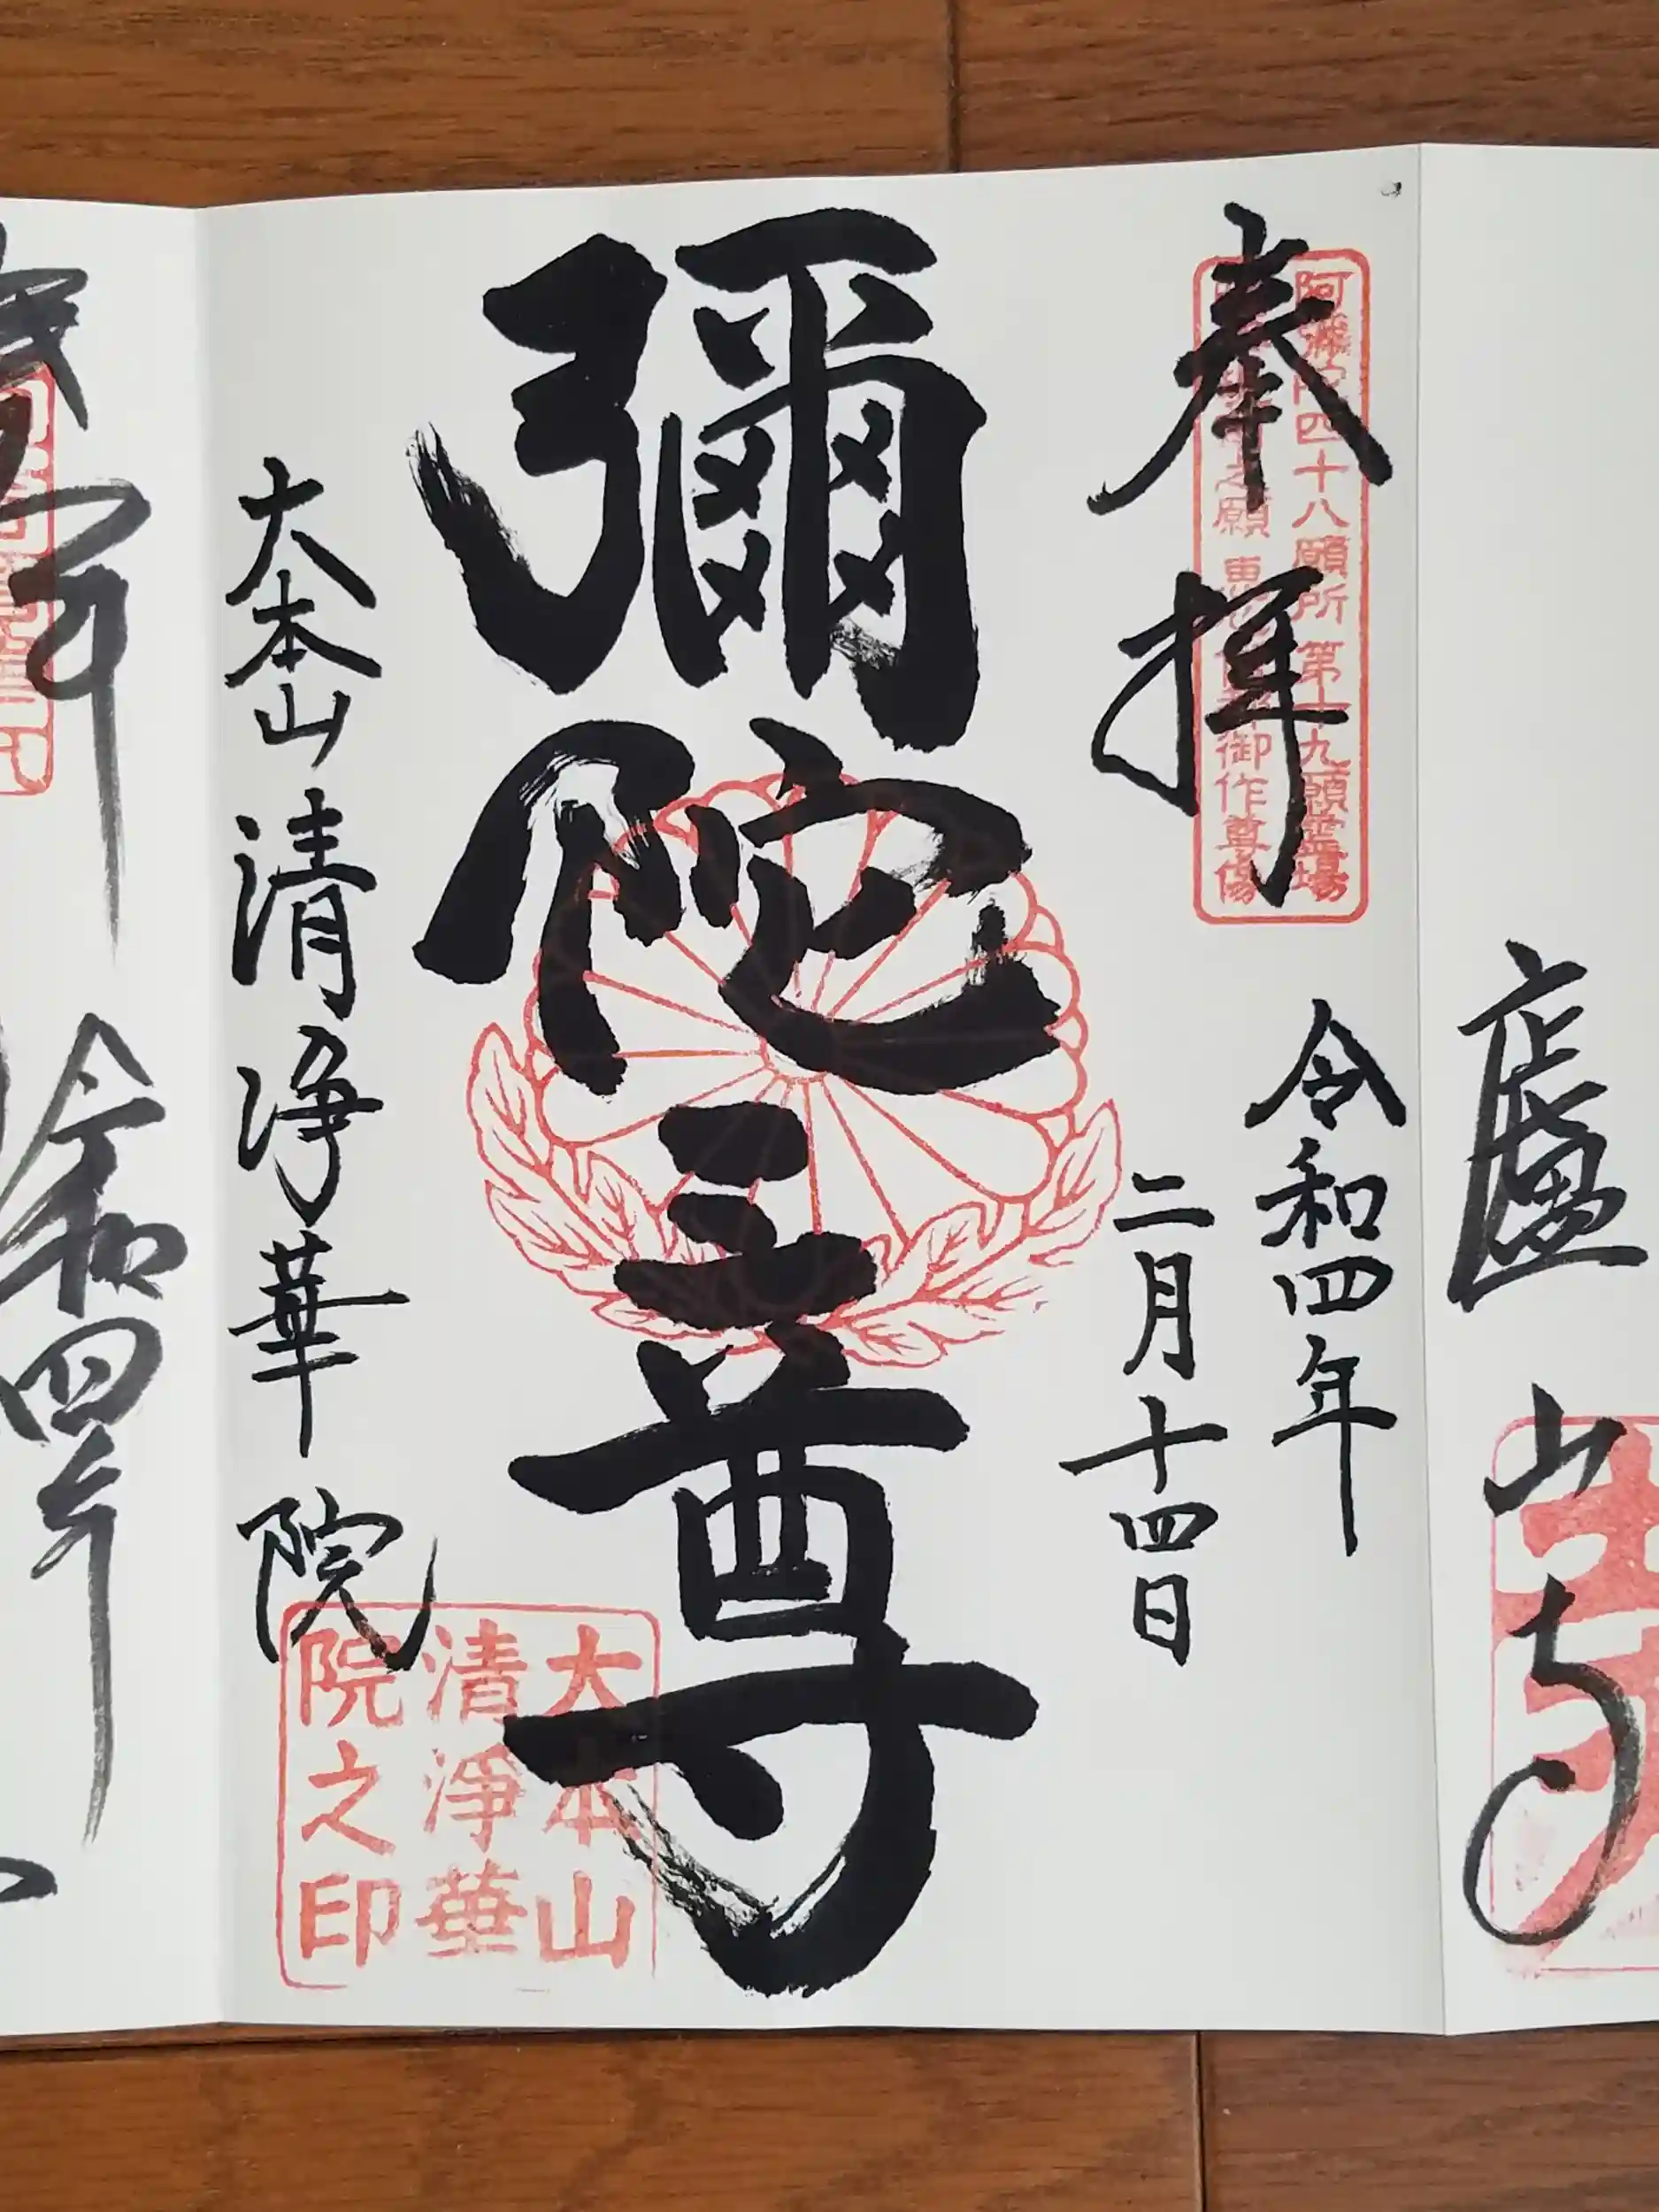 廬山寺
奉拝
阿彌陀四十八願所 第十九願霊場
之願 御作尊像
令和四年
二月十四日
彌陀三尊
大本山清浄華院
大本山
清淨華
院之印
令和四年